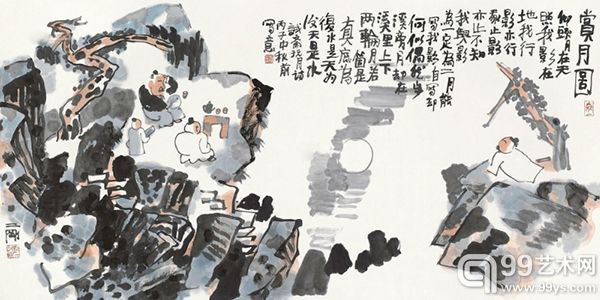 賞月圖
仰頭月在天
照我影在
地我行
影亦行
我止影
亦止不知
我與影
為一定為二月能
寫我影自寫却
何似偶然步
溪旁月却在
溪里上下
兩輪月若箇是
真底為
復水是天為
復天是水
誠齋玩月詩
丙子中秋前
寫意
99艺术网
www.99ys.com